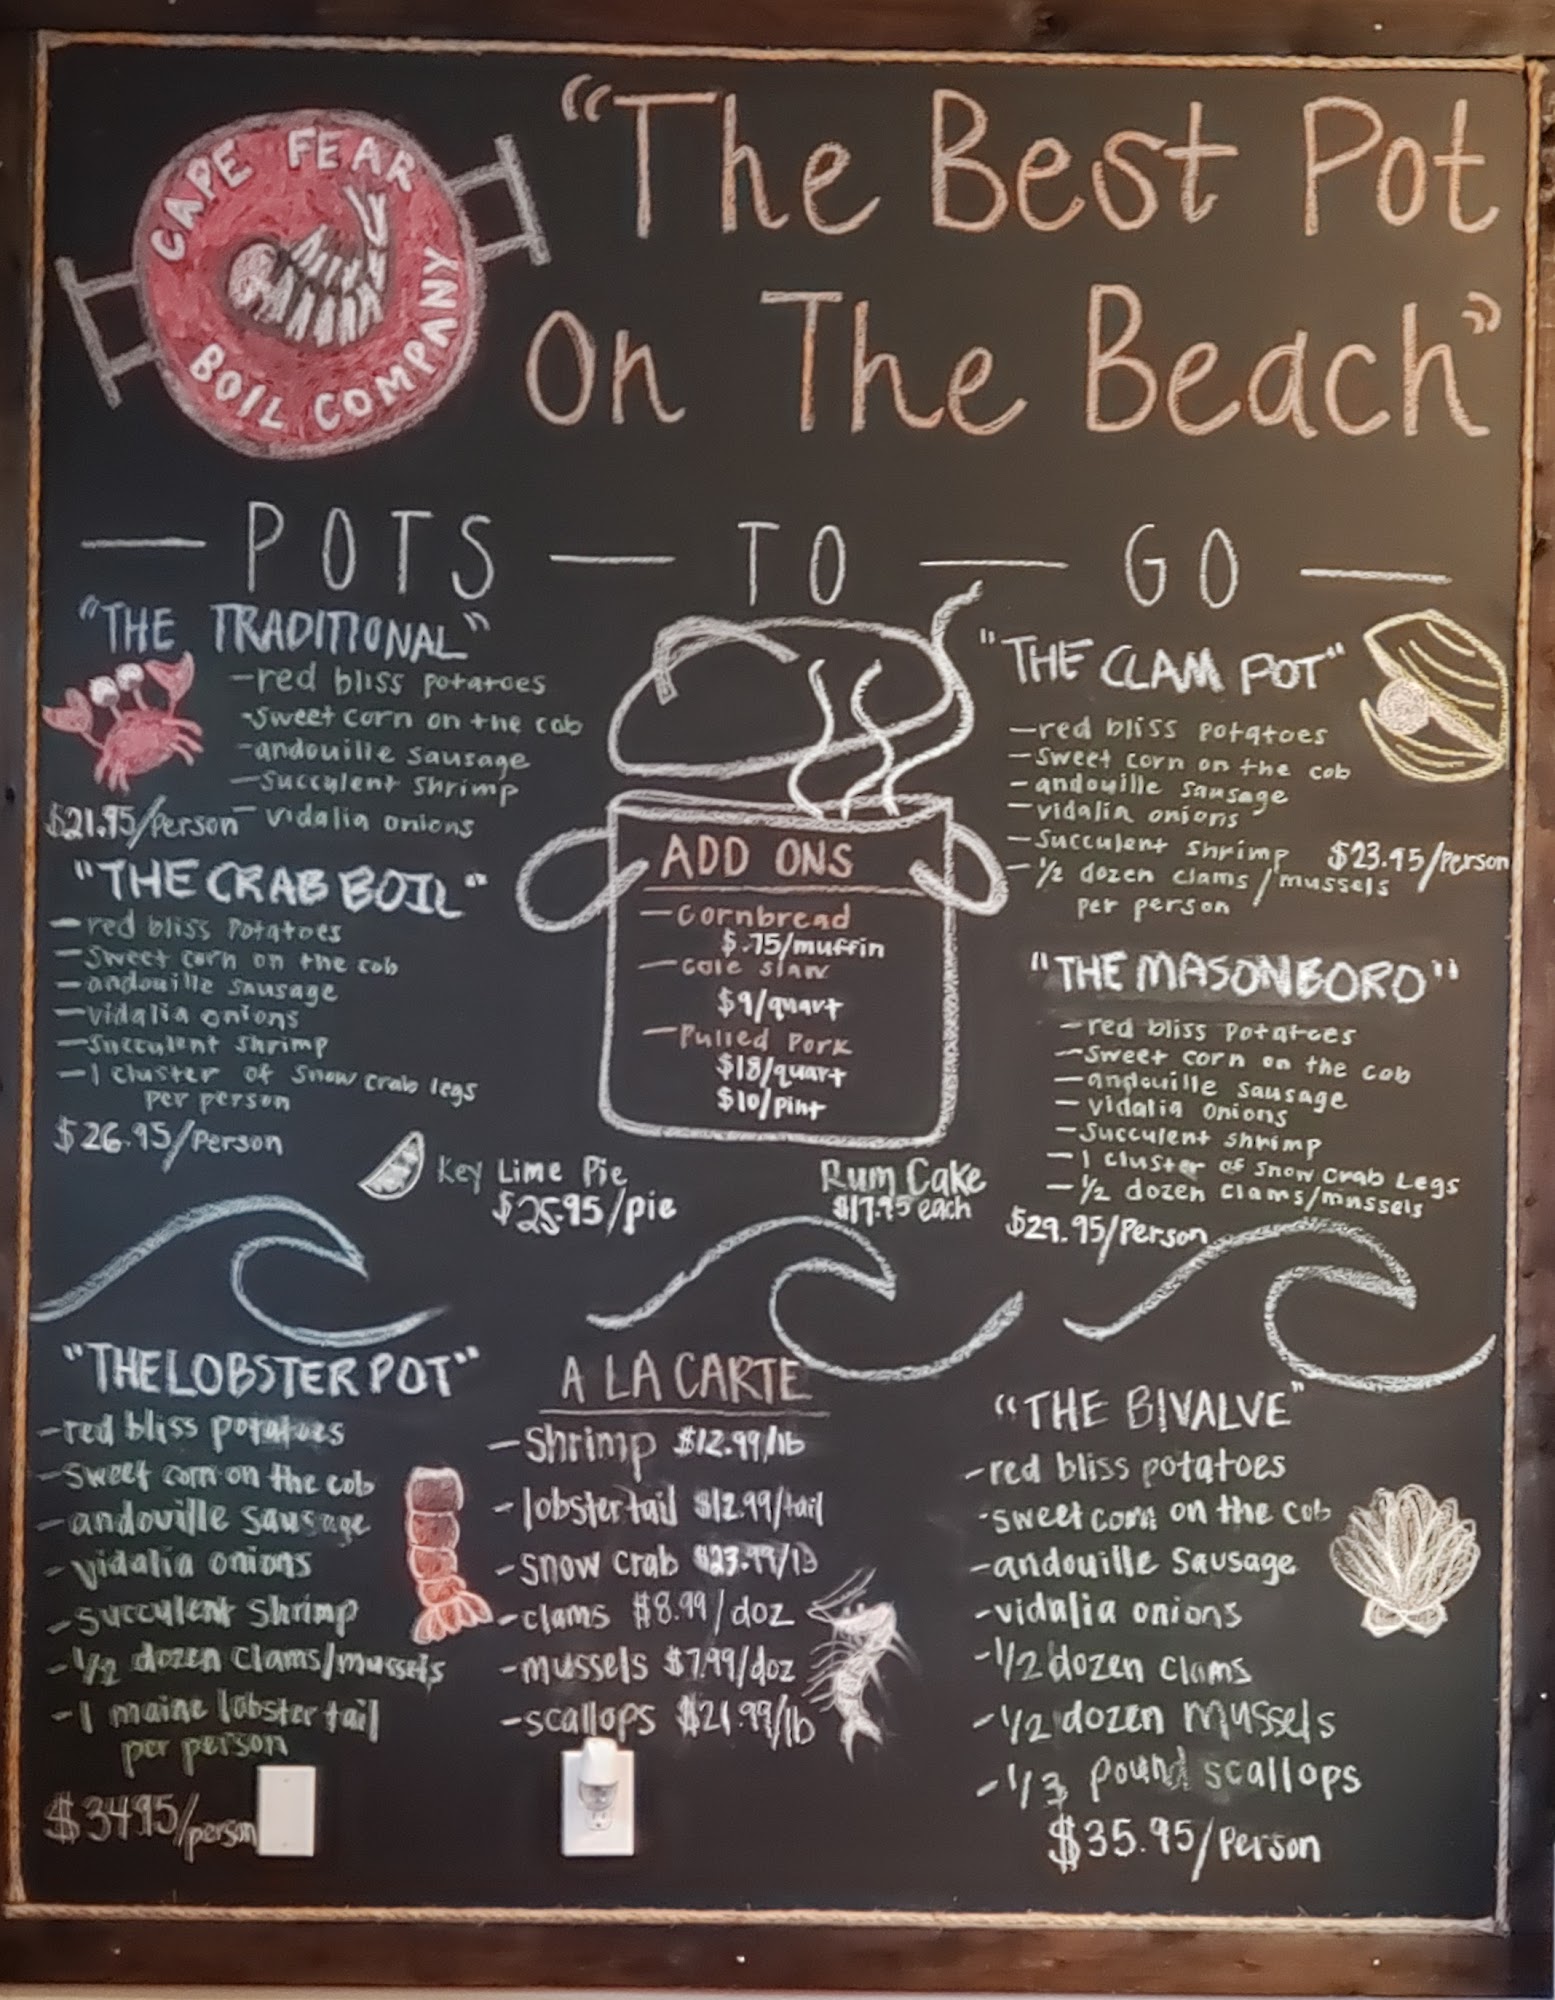 CAPE FEAR
BOIL COMPANY
"The Best Pot
On The Beach"
— POTS — TO — GO —
"THE TRADITIONAL"
-red bliss potatoes
-Sweet corn on the cob
-andouille sausage
-Succulent shrimp
-vidalia onions
$21.95/Person
"THE CRAB BOIL"
-red bliss potatoes
-Sweet corn on the cob
-andouille sausage
-vidalia onions
-Succulent shrimp
-1 cluster of snow crab legs
per person
$26.95/Person
ADD ONS
-Cornbread
$.75/muffin
-Cole slaw
$9/quart
-Pulled Pork
$18/quart
$10/pint
Key Lime Pie
$25.95/pie
Rum Cake
$17.95 each
"THE CLAM POT"
-red bliss potatoes
-Sweet corn on the cob
-andouille sausage
-vidalia onions
-Succulent shrimp
-1/2 dozen clams/mussels
per person
$23.95/Person
"THE MASONBORO"
-red bliss potatoes
-Sweet corn on the cob
-andouille sausage
-vidalia onions
-Succulent shrimp
-1 cluster of snow crab Legs
-1/2 dozen clams/mussels
$29.95/Person
"THE LOBSTER POT"
-red bliss potatoes
-Sweet corn on the cob
-andouille sausage
-vidalia onions
-succulent shrimp
-1/2 dozen clams/mussels
-1 maine lobster tail
per person
$34.95/person
A LA CARTE
-Shrimp $12.99/lb
-lobster tail $12.99/tail
-snow crab $23.99/lb
-clams $8.99/doz
-mussels $7.99/doz
-scallops $21.99/lb
"THE BIVALVE"
-red bliss potatoes
-sweet corn on the cob
-andouille sausage
-vidalia onions
-1/2 dozen clams
-1/2 dozen mussels
-1/3 pound scallops
$35.95/Person